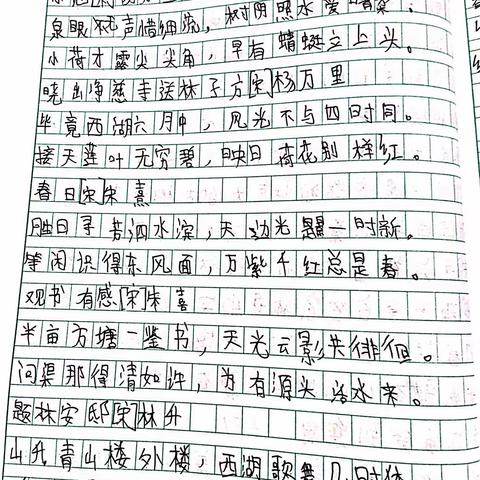 泉眼无声惜细流，树阴照水爱晴柔。
小荷才露尖尖角，早有蜻蜓立上头。
晓出净慈寺送林子方[宋]杨万里
毕竟西湖六月中，风光不与四时同。
接天莲叶无穷碧，映日荷花别样红。
春日[宋]朱熹
胜日寻芳泗水滨，天边光景一时新。
等闲识得东风面，万紫千红总是春。
观书有感[宋]朱喜
半亩方塘一鉴书，天光云影共徘徊。
问渠那得清如许，为有源头活水来。
题林安邸[宋]林升
山外青山楼外楼，西湖歌舞几时休